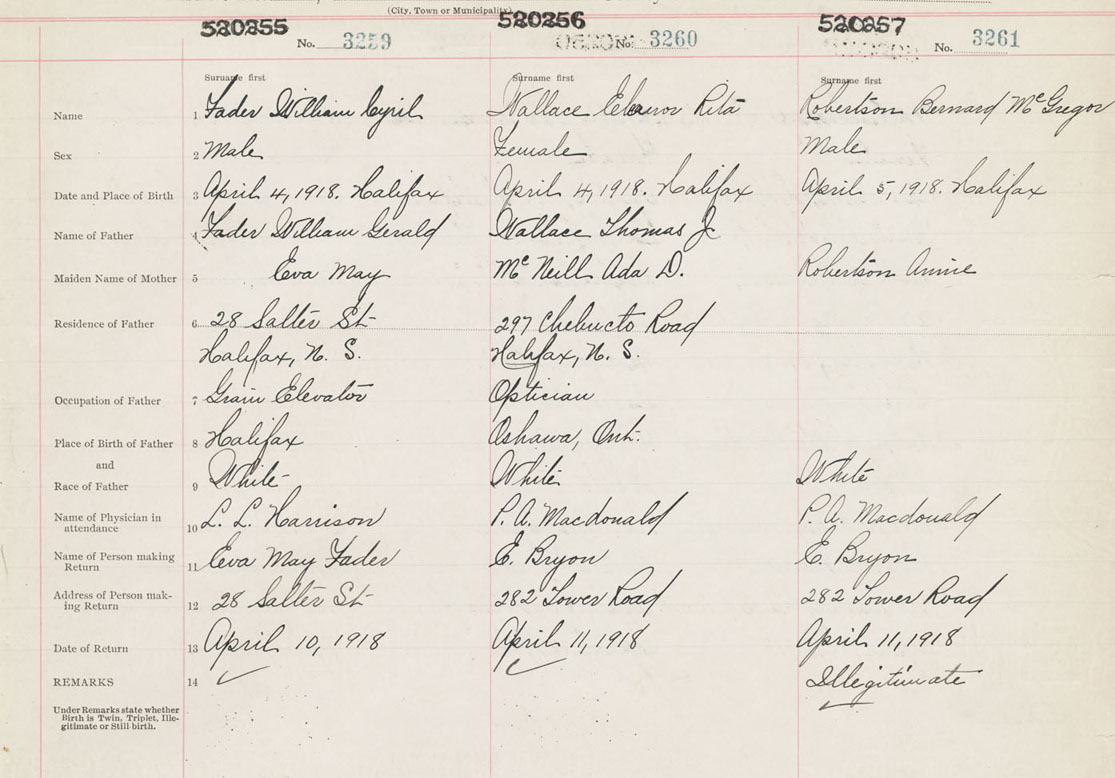 (City, Town or Municipality)
520255 520256 520257
No. 3259 No. 3260 No. 3261
Surname first Surname first Surname first
Name 1 Fader William Cyril Wallace Eleanor Rita Robertson Bernard McGregor
Sex 2 Male Female Male
Date and Place of Birth 3 April 4, 1918. Halifax April 4, 1918. Halifax April 5, 1918. Halifax
Name of Father 4 Fader William Gerald Wallace Thomas J
Maiden Name of Mother 5 Eva May McNeill Ada D. Robertson Annie
Residence of Father 6 28 Salter St 297 Chebucto Road
Halifax, N. S. Halifax, N. S.
Occupation of Father 7 Grain Elevator Optician
Place of Birth of Father 8 Halifax Oshawa, Ont.
and
Race of Father 9 White White White
Name of Physician in attendance 10 L. L. Harrison P. A. Macdonald P. A. Macdonald
Name of Person making Return 11 Eva May Fader E. Bryon E. Bryon
Address of Person mak-ing Return 12 28 Salter St 282 Tower Road 282 Tower Road
Date of Return 13 April 10, 1918 April 11, 1918 April 11, 1918
REMARKS 14 Illegitimate
Under Remarks state whether
Birth is Twin, Triplet, Ille-
gitimate or Still-birth.